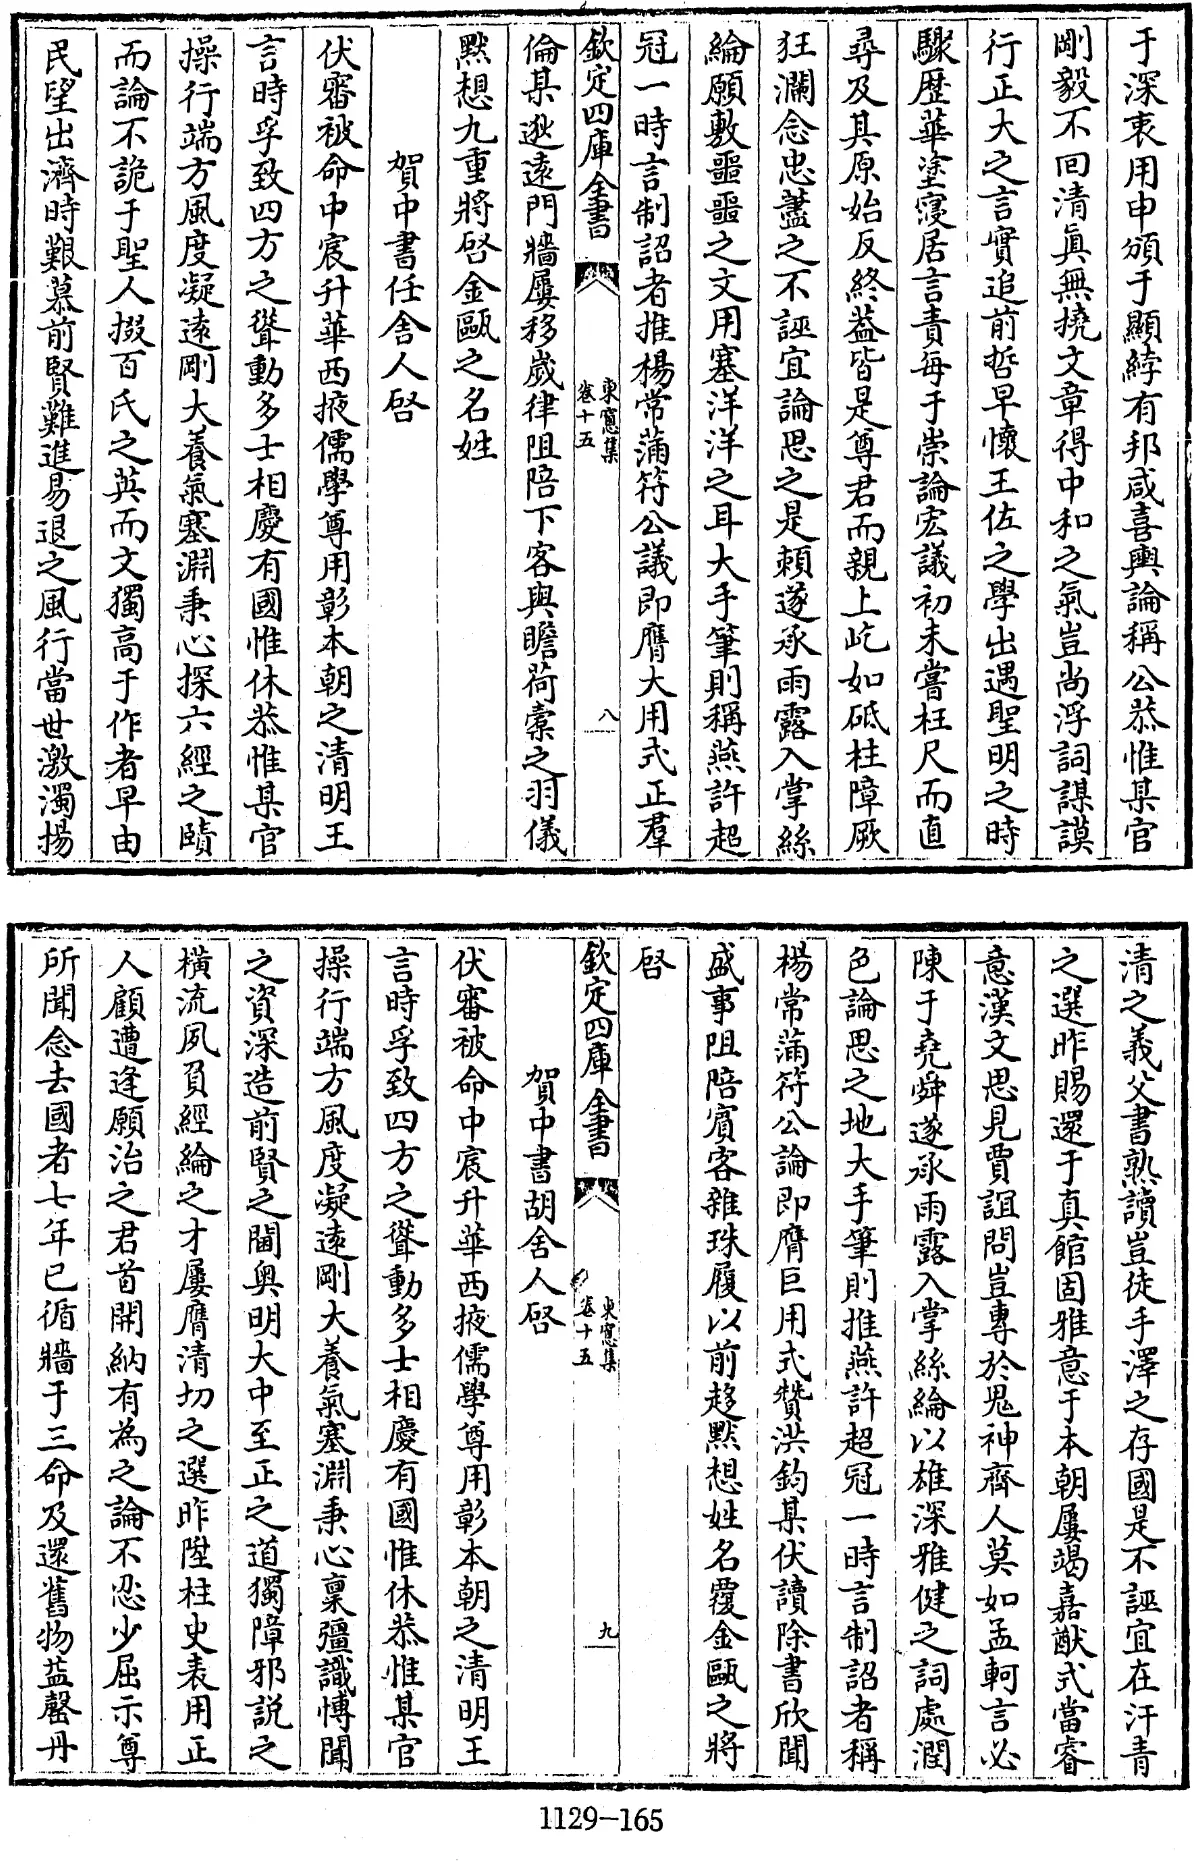 于深衷用申頒于顯綍有邦咸喜輿論稱公恭惟某官
剛毅不回清眞無撓文章得中和之氣豈尚浮詞謀謨
行正大之言實追前哲早懷王佐之學出遇聖明之時
驟歷華塗寖居言責每于崇論宏議初未嘗枉尺而直
尋及其原始反終葢皆是尊君而親上屹如砥柱障厥
狂瀾念忠藎之不誣宜論思之是頼遂承雨露入掌絲
綸願敷噩噩之文用塞洋洋之耳大手筆則稱燕許超
冠一時言制詔者推楊常蒲符公議即膺大用式正羣
欽定四庫全書
東窻集
卷十五
八
倫某逖遠門牆屢移歲律阻陪下客與瞻荷橐之羽儀
默想九重將啓金甌之名姓
賀中書任舍人啓
伏審被命中宸升華西掖儒學尊用彰本朝之清明王
言時孚致四方之聳動多士相慶有國惟休恭惟某官
操行端方風度凝遠剛大養氣塞淵秉心探六經之賾
而論不詭于聖人掇百氏之英而文獨高于作者早由
民望出濟時艱慕前賢難進易退之風行當世激濁揚
清之義父書熟讀豈徒手澤之存國是不誣宜在汗青
之選昨賜還于真館固雅意于本朝屢竭嘉猷式當睿
意漢文思見賈誼問豈專於鬼神齊人莫如孟軻言必
陳于堯舜遂承雨露入掌絲綸以雄深雅健之詞處潤
色論思之地大手筆則推燕許超冠一時言制詔者稱
楊常蒲符公論即膺巨用式贊洪鈞某伏讀除書欣聞
盛事阻陪賓客雜珠履以前趍默想姓名覆金甌之將
啓
欽定四庫全書
東窻集
卷十五
九
賀中書胡舍人啓
伏審被命中宸升華西掖儒學尊用彰本朝之清明王
言時孚致四方之聳動多士相慶有國惟休恭惟某官
操行端方風度凝遠剛大養氣塞淵秉心稟彊識愽聞
之資深造前賢之閫奥明大中至正之道獨障邪説之
橫流夙負經綸之才屢膺清切之選昨陞柱史表用正
人顧遭逢願治之君首開納有為之論不忍少屈示尊
所聞念去國者七年已循牆于三命及還舊物益罄丹
1129-165